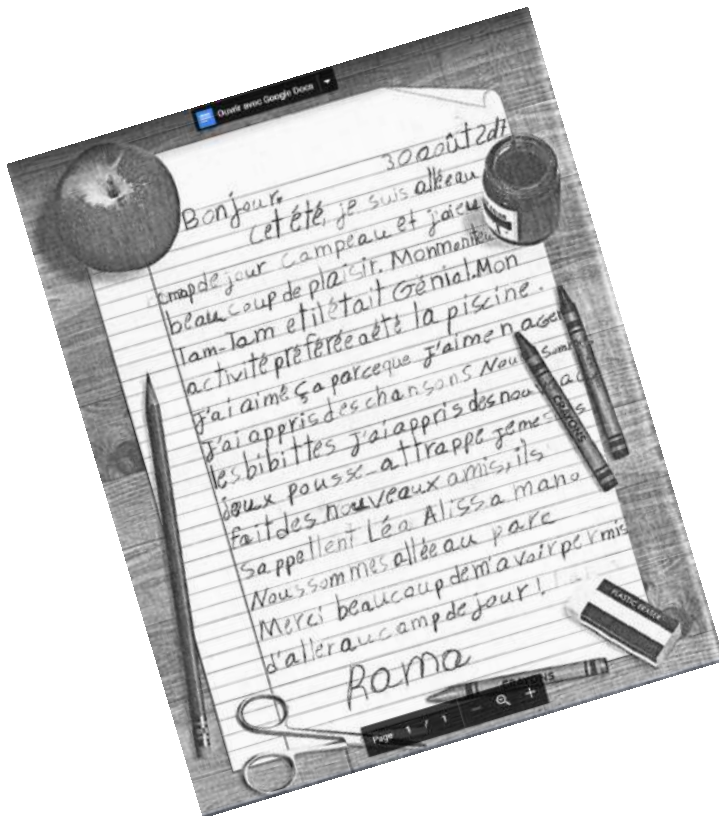 Ouvrir avec Google Docs
30 août 2017
Bonjour,
cet été, je suis allée au
camp de jour Campeau et j'ai eu
beaucoup de plaisir. Mon moniteur
Tam-Tam et il était Génial. Mon
activité préférée a été la piscine.
j'ai aimé ça parceque j'aime nager
j'ai appris des chansons Nous sommes
les bibittes j'ai appris des nouveaux
jeux pousse-attrappe je me suis
fait des nouveaux amis, ils
s'appellent Léa Alissa mano
Nous sommes allée au parc
Merci beaucoup de m'avoir permis
d'aller au camp de jour !
Rama
PLASTIC ERASER
CRAYONS
CRAYONS
Page 1 / 1